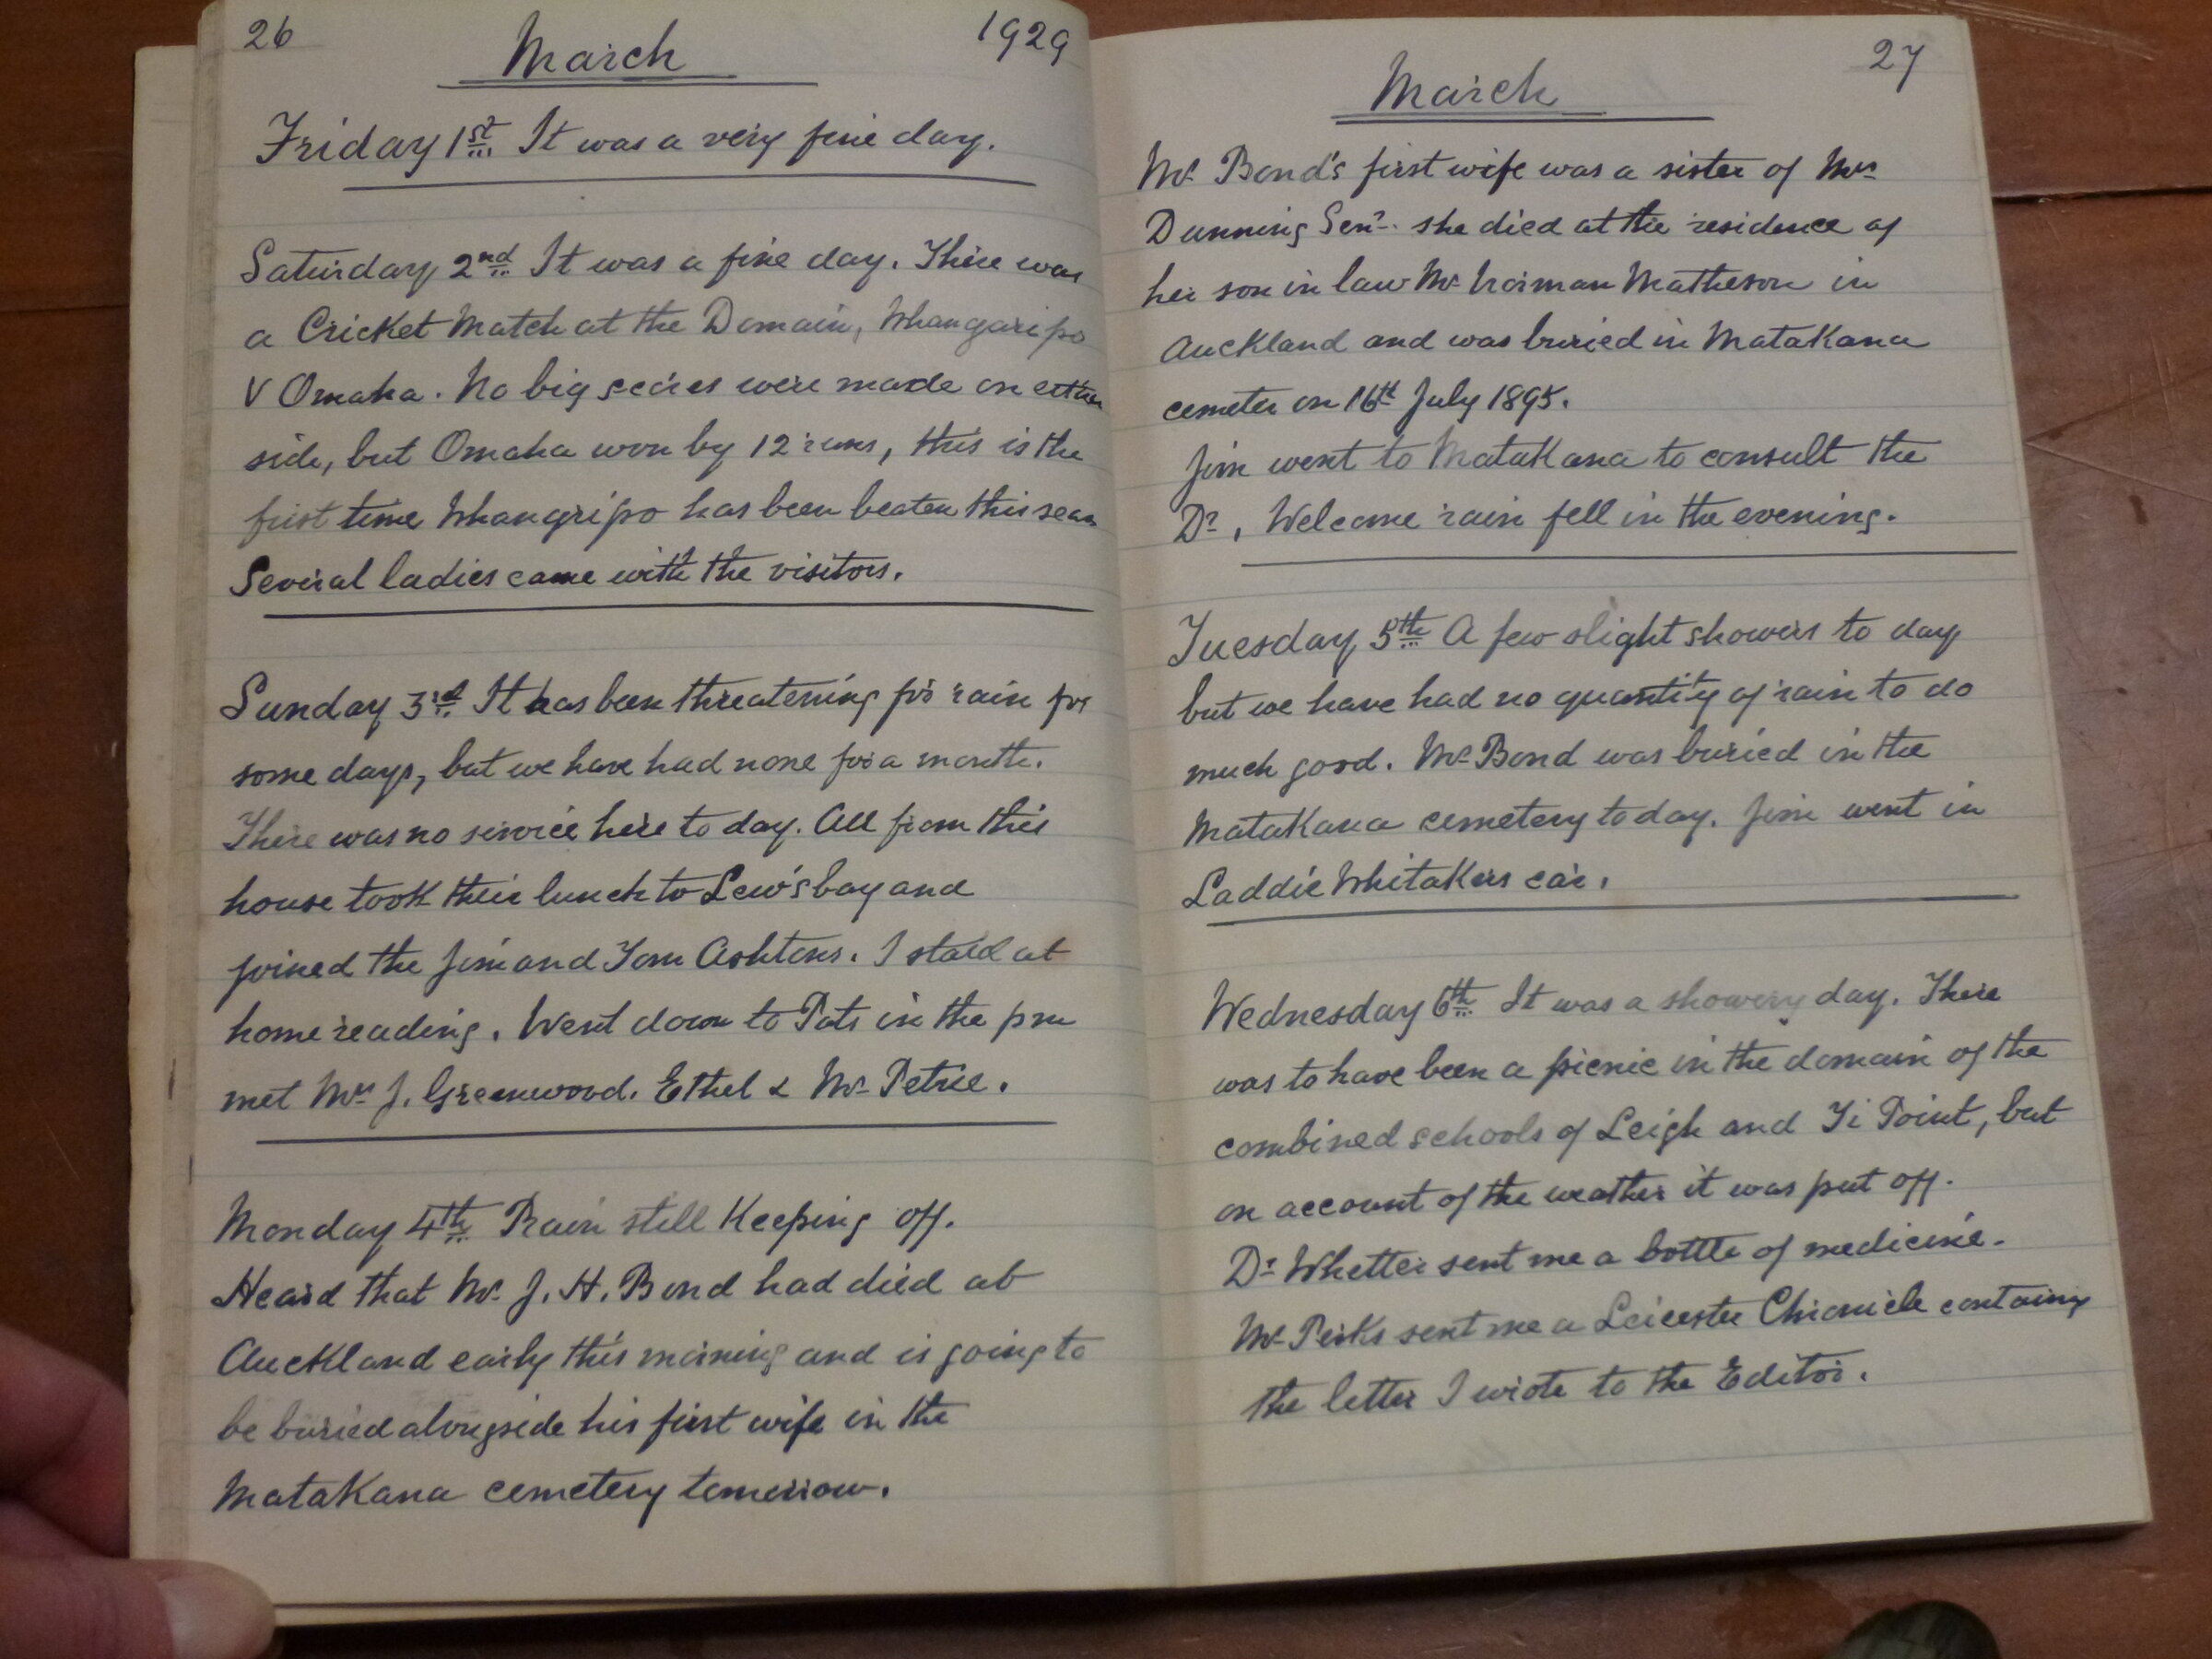 26 March 1929
Friday 1st It was a very fine day.
Saturday 2nd It was a fine day. There was
a Cricket Match at the Domain, Whangaripo
V Omaha. No big scores were made on either
side, but Omaha won by 12 runs, this is the
first time Whangripo has been beaten this
Several ladies came with the visitors.
Sunday 3rd It has been threatening for rain for
some days, but we have had none for a month.
There was no service here to day. All from this
house took their lunch to Lew's bay and
joined the Jim and Tom Ashtons. I staid at
home reading. Went down to Pats in the pm
met Mrs J. Greenwood. Ethel & Mr Petrie.
Monday 4th Rain still Keeping off.
Heard that Mr J. H. Bond had died at
Auckland early this morning and is going to
be buried alongside his first wife in the
Matakana cemetery tomorrow.
27
March
Mr Bond's first wife was a sister of Mrs
Dunning Senr. she died at the residence of
her son in law Mr Norman Matheson in
Auckland and was buried in Matakana
cemeter on 16th July 1895.
Jim went to Matakana to consult the
Dr, Welcome rain fell in the evening.
Tuesday 5th A few slight showers to day
but we have had no quantity of rain to do
much good. Mr Bond was buried in the
Matakana cemetery today. Jim went in
Laddie Whitakers car.
Wednesday 6th It was a showery day. There
was to have been a picnic in the domain of the
combined schools of Leigh and Ti Point, but
on account of the weather it was put off.
Dr Whetter sent me a bottle of medicine.
Mr Perks sent me a Leicester Chronicle containing
the letter I wrote to the Editor.